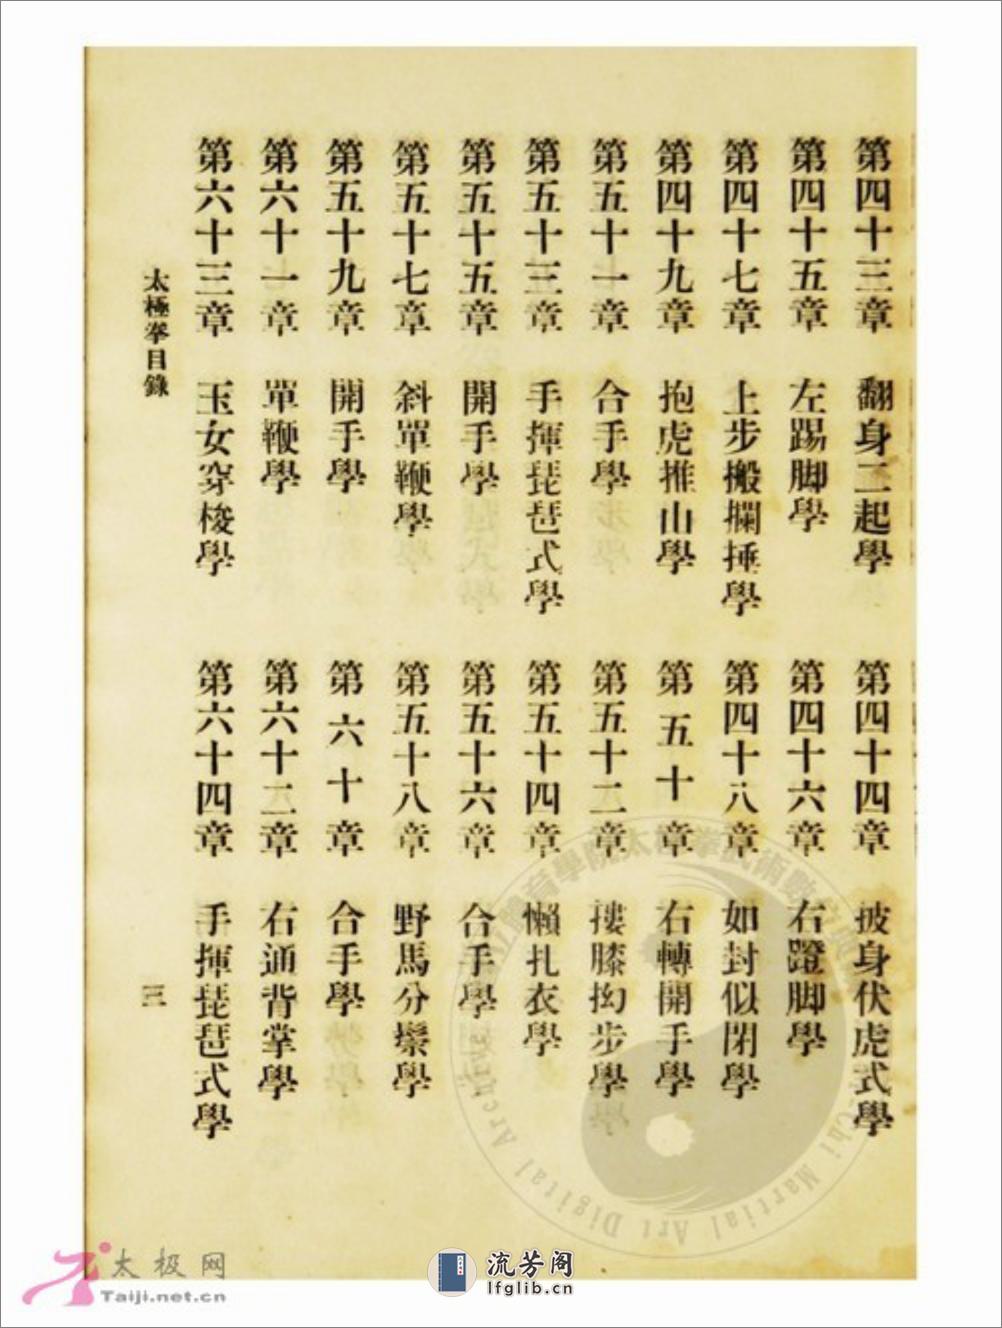 第四十三章　翻身二起學　第四十四章　披身伏虎式學
第四十五章　左踢脚學　第四十六章　右蹬脚學
第四十七章　上步搬攔捶學　第四十八章　如封似閉學
第四十九章　抱虎推山學　第五十章　右轉開手學
第五十一章　合手學　第五十二章　摟膝拗步學
第五十三章　手揮琵琶式學　第五十四章　懶扎衣學
第五十五章　開手學　第五十六章　合手學
第五十七章　斜單鞭學　第五十八章　野馬分鬃學
第五十九章　開手學　第六十章　合手學
第六十一章　單鞭學　第六十二章　右通背掌學
第六十三章　玉女穿梭學　第六十四章　手揮琵琶式學
太極拳目錄　三
太极网
Taiji.net.cn
流芳阁
lfglib.cn
Chi Martial Art Digital